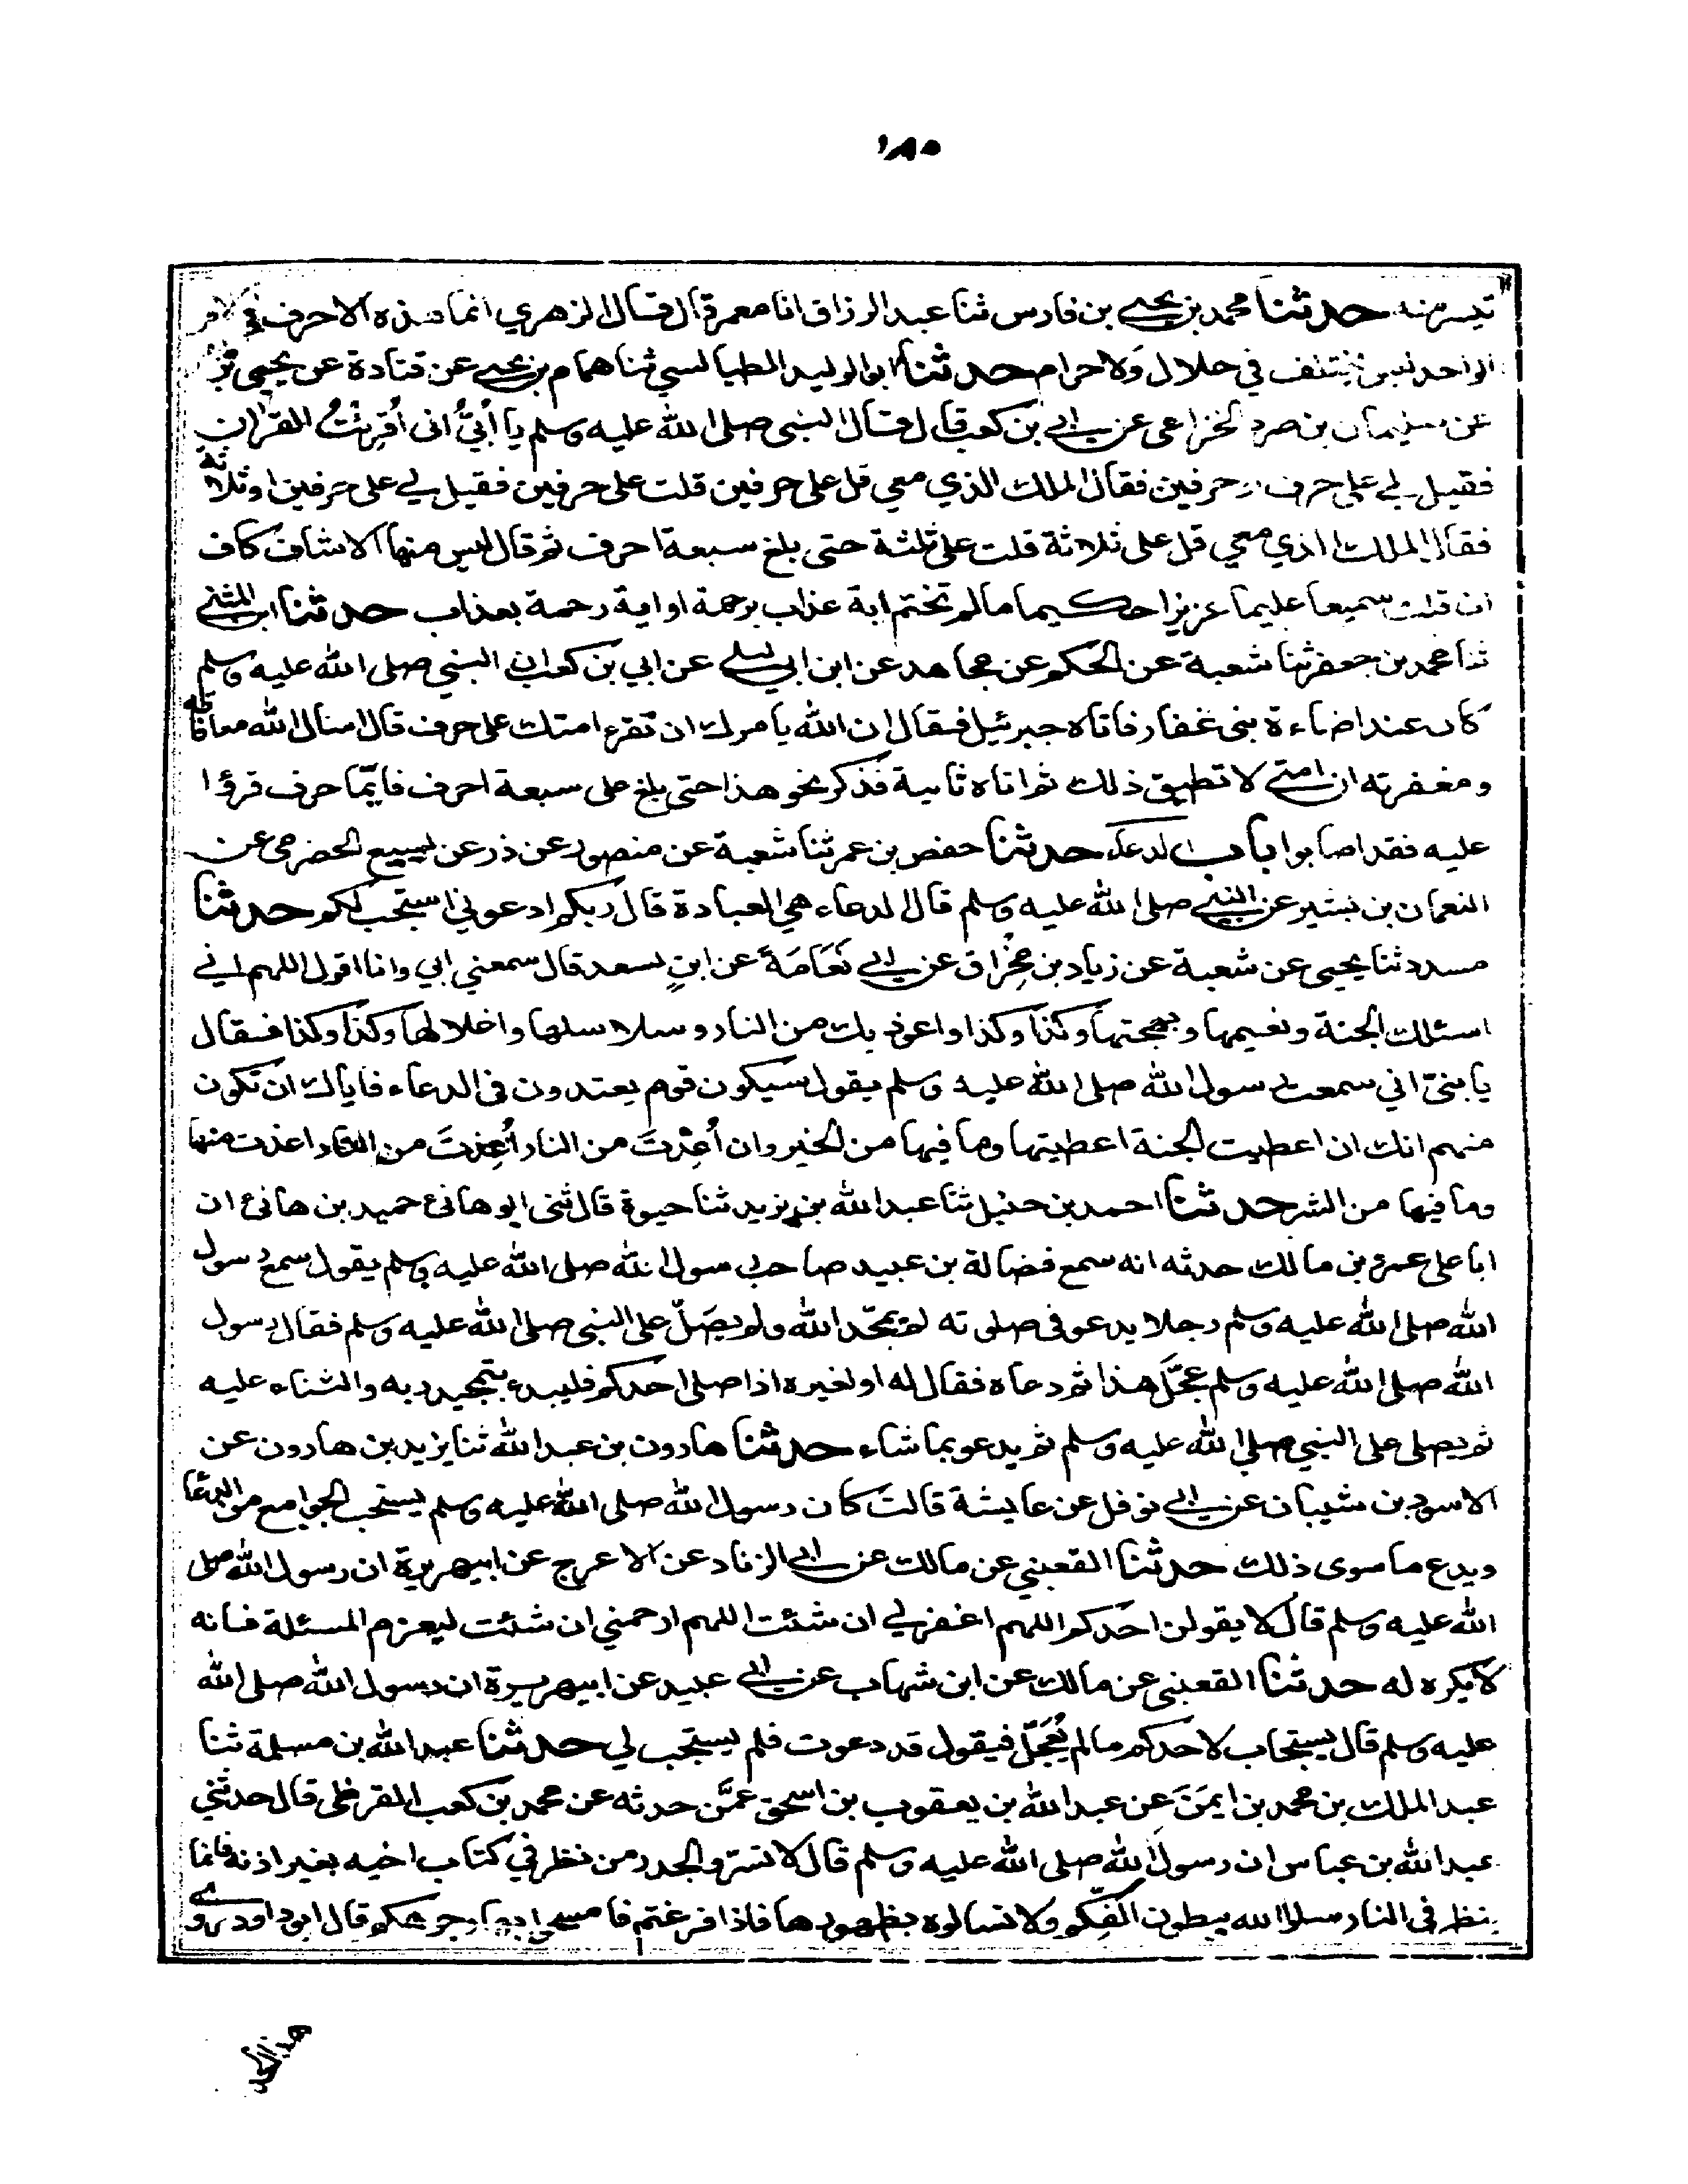 ١٨٥
تيسر منه حدثنا محمد بن يحيى بن فارس ثنا عبد الرزاق انا معمر قال قال الزهري انما هذه الاحرف في الامر
الواحد ليس يختلف في حلال ولا حرام حدثنا ابو الوليد الطيالسي ثنا همام بن يحيى عن قتادة عن يحيى
عن سليمان بن صرد الخزاعي عن ابي بن كعب قال قال النبي صلى الله عليه وسلم يا أُبَيُّ اني أُقرِئتُ القرآن
فقيل لي على حرف او حرفين فقال الملك الذي معي قل على حرفين قلت على حرفين فقيل لي على حرفين او ثلاثة
فقال الملك الذي معي قل على ثلاثة قلت على ثلثة حتى بلغ سبعة احرف ثم قال ليس منها الا شاف كاف
ان قلت سميعا عليما عزيزا حكيما ما لم تختم اية عذاب برحمة او اية رحمة بعذاب حدثنا ابن المثنى
ثنا محمد بن جعفر ثنا شعبة عن الحكم عن مجاهد عن ابن ابي ليلى عن ابي بن كعب ان النبي صلى الله عليه وسلم
كان عند اضاءة بني غفار فاتاه جبرئيل فقال ان الله يامرك ان تقرء امتك على حرف قال اسئال الله معافاته
ومغفرته ان امتي لا تطيق ذلك ثم اتاه ثانية فذكر نحو هذا حتى بلغ على سبعة احرف فايّما حرف قرؤا
عليه فقد اصابوا باب الدعاء حدثنا حفص بن عمر ثنا شعبة عن منصور عن ذر عن يسيع الحضرمي عن
النعمان بن بشير عن النبي صلى الله عليه وسلم قال الدعاء هي العبادة قال ربكم ادعوني استجب لكم حدثنا
مسدد ثنا يحيى عن شعبة عن زياد بن مِخْرَاق عن ابي نَعَامَةَ عن ابنٍ لسعد قال سمعني ابي وانا اقول اللهم اني
اسئلك الجنة ونعيمها وبهجتها وكذا وكذا واعوذ بك من النار وسلاسلها واغلالها وكذا وكذا فقال
يا بنيّ اني سمعت رسول الله صلى الله عليه وسلم يقول سيكون قوم يعتدون في الدعاء فاياك ان تكون
منهم انك ان اعطيت الجنة اعطيتها وما فيها من الخير وان أُعِذْتَ من النار أُعِذتَ من النار اعذت منها
وما فيها من الشر حدثنا احمد بن حنبل ثنا عبد الله بن يزيد ثنا حيوة قال ثني ابو هانئ حميد بن هانئ ان
ابا علي عمرو بن مالك حدثه انه سمع فضالة بن عبيد صاحب رسول الله صلى الله عليه وسلم يقول سمع رسول
الله صلى الله عليه وسلم رجلا يدعو في صلوته لم يمجّد الله ولم يصلّ على النبي صلى الله عليه وسلم فقال رسول
الله صلى الله عليه وسلم عجّلَ هذا ثم دعاه فقال له او لغيره اذا صلى احدكم فليبدء بتمجيد ربه والثناء عليه
ثم يصلي على النبي صلى الله عليه وسلم ثم يدعو بما شاء حدثنا هارون بن عبد الله ثنا يزيد بن هارون عن
الاسود بن شيبان عن ابي نوفل عن عايشة قالت كان رسول الله صلى الله عليه وسلم يستحب الجوامع من الدعاء
ويدع ما سوى ذلك حدثنا القعنبي عن مالك عن ابي الزناد عن الاعرج عن ابي هريرة ان رسول الله صلى
الله عليه وسلم قال لا يقولن احدكم اللهم اغفر لي ان شئت اللهم ارحمني ان شئت ليعزم المسئلة فانه
لا مكره له حدثنا القعنبي عن مالك عن ابن شهاب عن ابي عبيد عن ابي هريرة ان رسول الله صلى الله
عليه وسلم قال يستجاب لاحدكم ما لم يُعَجّل فيقول قد دعوت فلم يستجب لي حدثنا عبد الله بن مسلمة ثنا
عبد الملك بن محمد بن ايمَنَ عن عبد الله بن يعقوب بن اسحق عمَّن حدثه عن محمد بن كعب القرظي قال حدثني
عبد الله بن عباس ان رسول الله صلى الله عليه وسلم قال لا تستروا الجدر من نظر في كتاب اخيه بغير اذنه فانما
ينظر في النار سلوا الله ببطون اكفّكم ولا تسالوه بظهورها فاذا فرغتم فامسحوا بها وجوهكم قال ابو داود روي